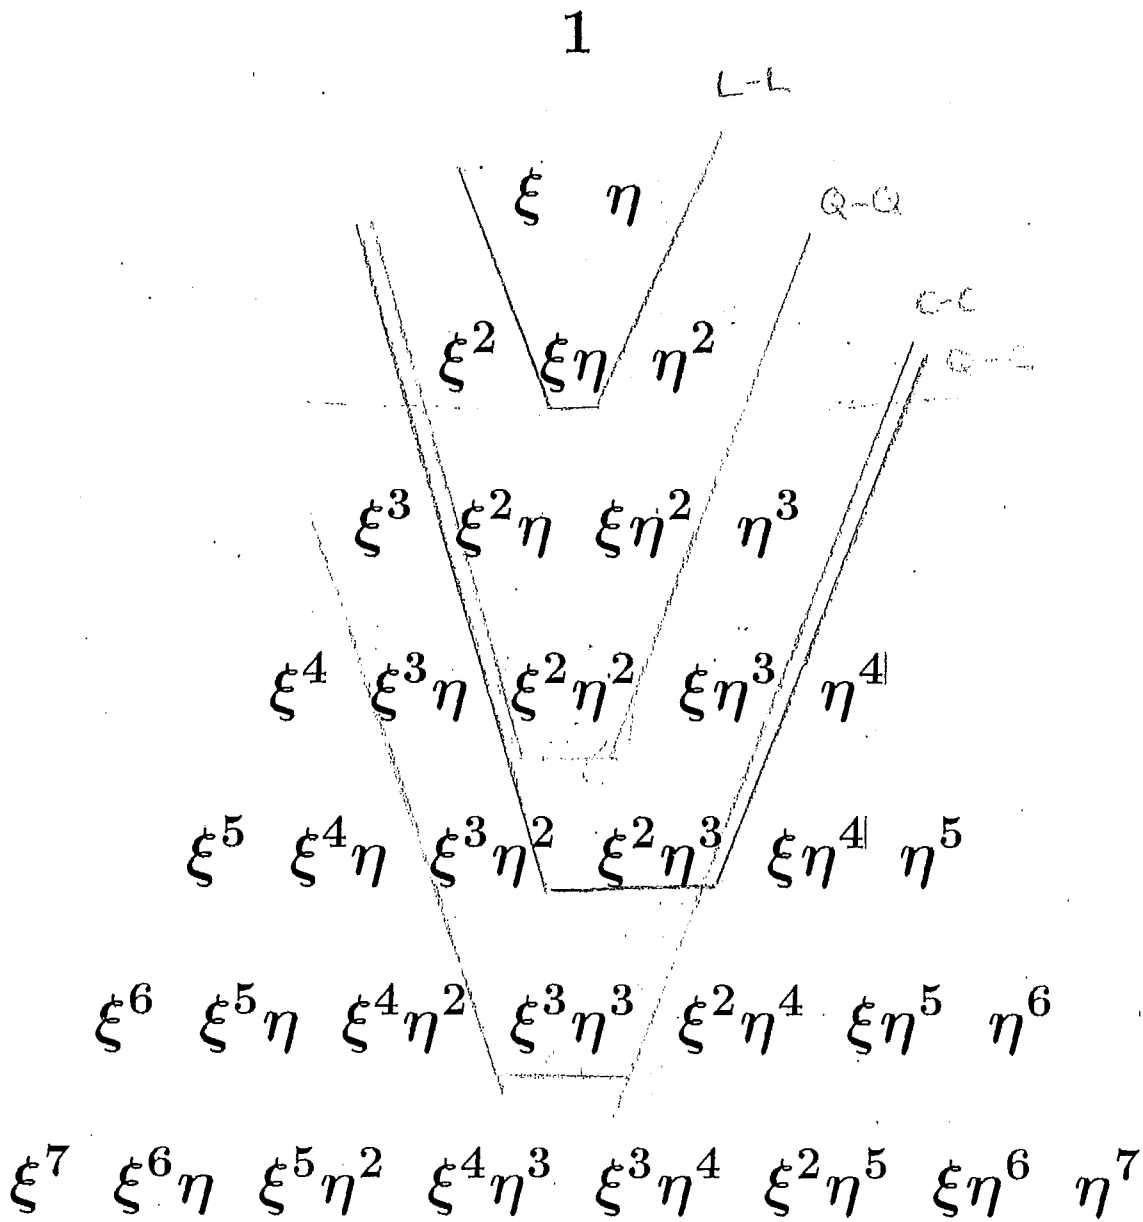 1
L-L
ξ η
Q-Q
C-C
ξ² ξη η²
ξ³ ξ²η ξη² η³
ξ⁴ ξ³η ξ²η² ξη³ η⁴
ξ⁵ ξ⁴η ξ³η² ξ²η³ ξη⁴ η⁵
ξ⁶ ξ⁵η ξ⁴η² ξ³η³ ξ²η⁴ ξη⁵ η⁶
ξ⁷ ξ⁶η ξ⁵η² ξ⁴η³ ξ³η⁴ ξ²η⁵ ξη⁶ η⁷